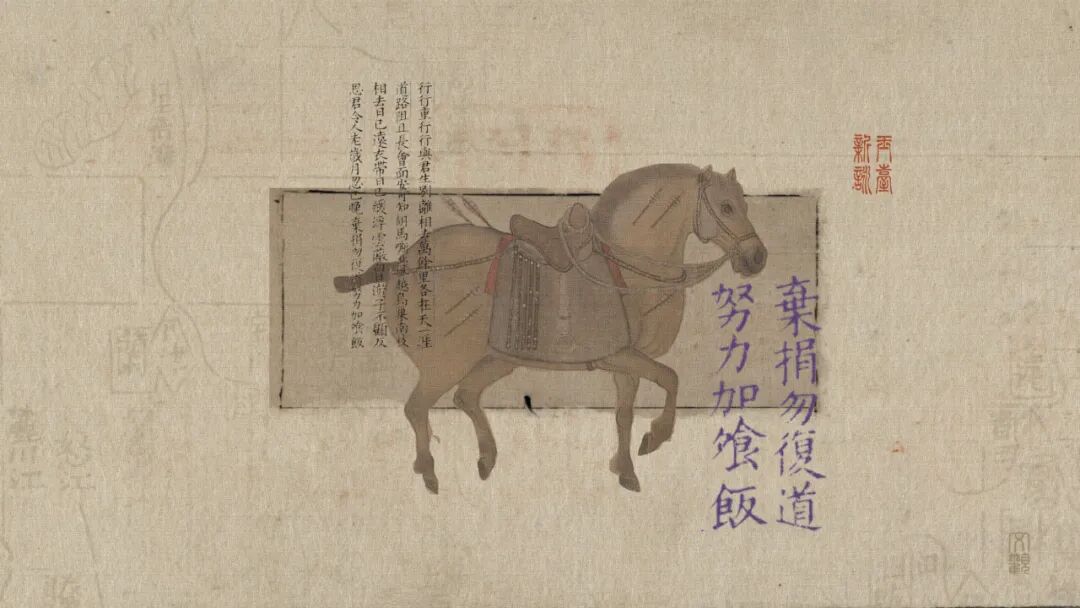 玉臺
新詠
棄捐勿復道
努力加飡飯
行行重行行與君生別離相去萬餘里各在天一涯
道路阻且長會面安可知胡馬嘶風越鳥巢南枝
相去日已遠衣帶日已緩浮雲蔽白日游子不顧反
思君令人老歲月忽已晚棄捐勿復道努力加飡飯